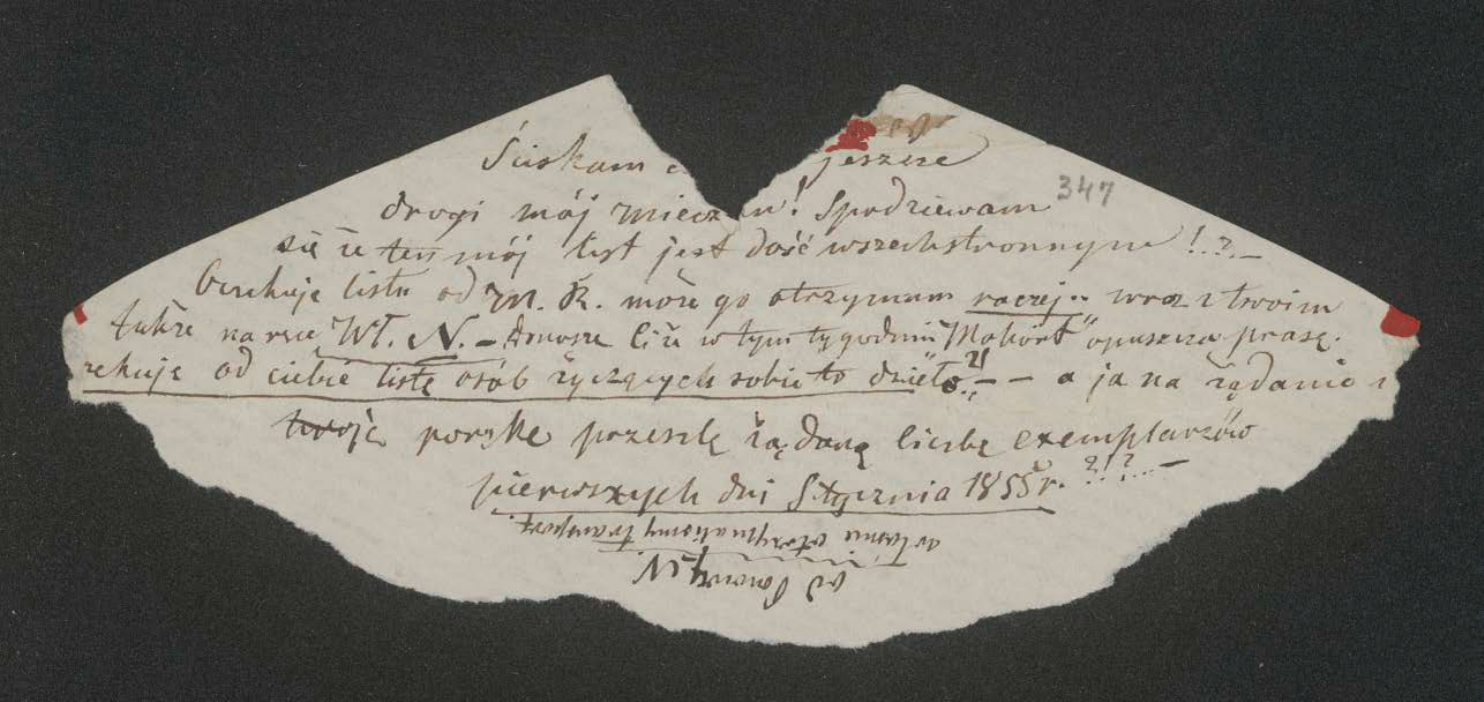 Ściskam c jeszcze
347
drogi mój Miecz u! Spodziewam
się że ten mój list jest dość wszechstronnym !..?..—
Oczekuję listu od M. R. może go otrzymam raczej.. wraz z twoim
także na ręce Wł. N. — Donoszę Ci że w tym tygodniu "Mohort" opuszcza prasę.
zekuję od ciebie listę osób życzących sobie to dzieło.?! — — a ja na żądanie i
twoję porękę prześlę żądaną liczbę exemplarzów
pierwszych dni Stycznia 1855 r. ?!?...—
właśnie otrzymaliśmy transport
od N.